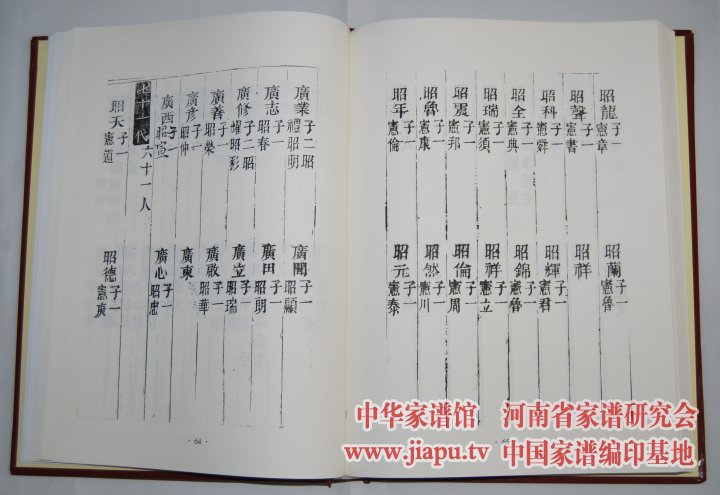 廣業 子二昭禮昭明 廣聞 子一昭顯
廣志 子一昭春 廣田 子一昭明
廣修 子二昭耀昭彩 廣立 子一昭瑞
廣善 子一昭榮 廣啟 子一昭華
廣彥 子一昭仲 廣東
廣西 子一昭宣 廣心 子一昭忠
七十一代 六十一人
昭天 子一憲道 昭德 子一憲
·64·
昭龍 子一憲章 昭蘭 子一憲魯
昭聲 子一憲書 昭祥
昭科 子一憲舜 昭輝 子一憲君
昭全 子一憲典 昭錦 子一憲魯
昭瑞 子一憲須 昭祥 子一憲立
昭震 子一憲邦 昭倫 子一憲周
昭魯 子一憲康 昭然 子一憲川
昭年 子一憲倫 昭元 子一憲泰
中华家谱馆 河南省家谱研究会
www.jiapu.tv 中国家谱编印基地